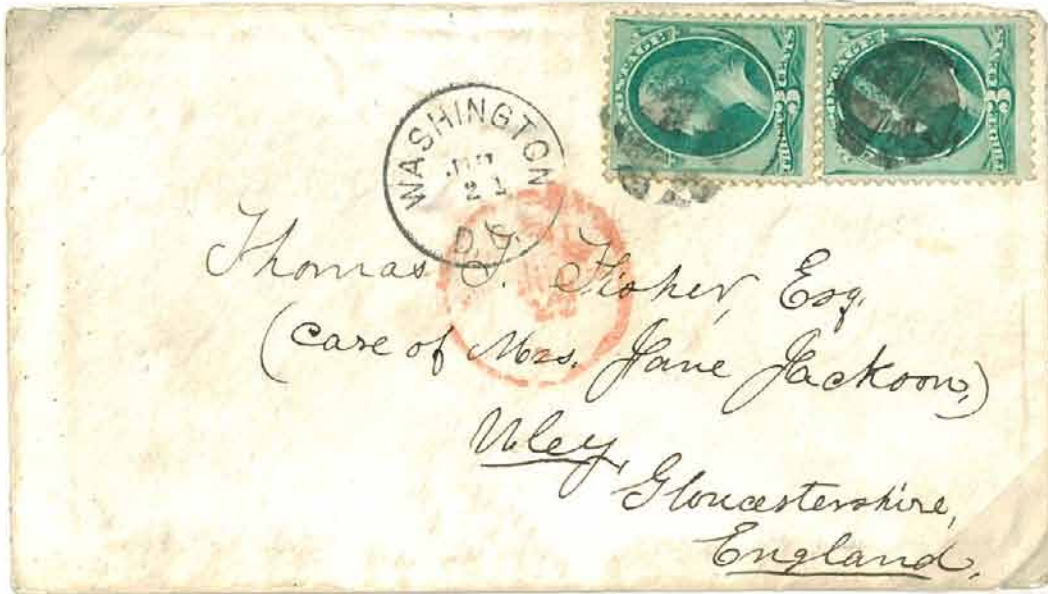 POSTAGE
POSTAGE
WASHINGTON
21
D.C.
Thomas J. Fisher, Esq.
(Care of Mrs. Jane Jackson,)
Uley,
Gloucestershire,
England.